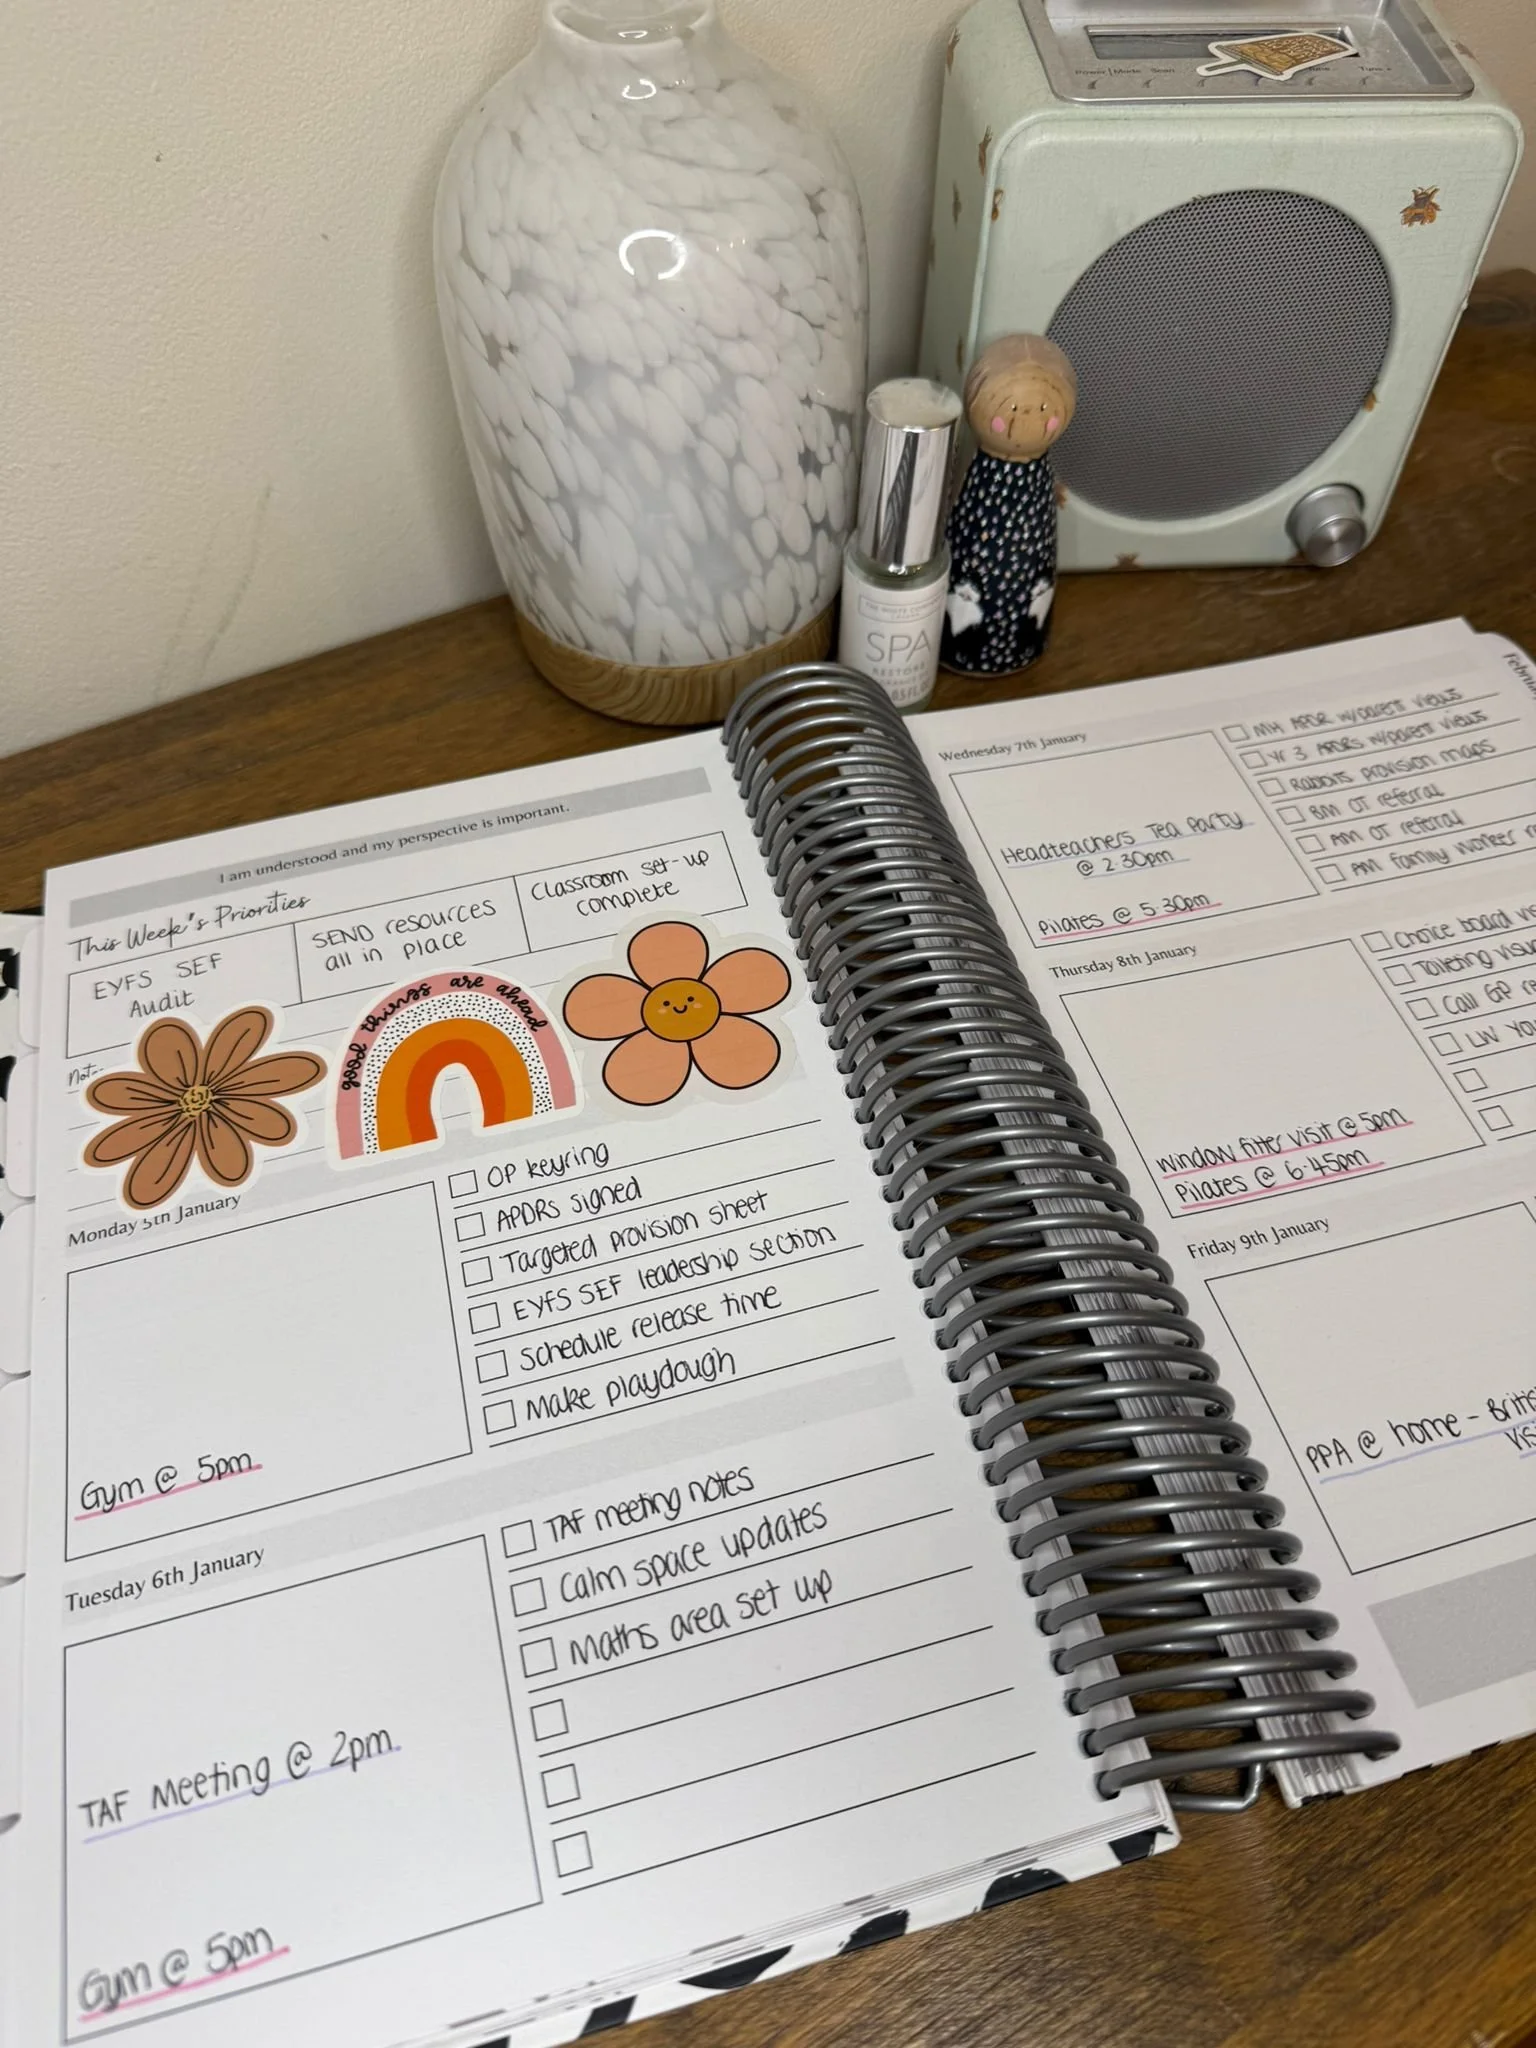 Power | Mode Scan Tune - Tune +
SPA
RESTORE
I am understood and my perspective is important.
This Week's Priorities
EYFS SEF
Audit
SEND resources
all in place
Classroom set-up
complete
good things are ahead
Monday 5th January
Gym @ 5pm
OP keyring
APDRs signed
Targeted provision sheet
EYFS SEF leadership section
Schedule release time
Make playdough
Tuesday 6th January
TAF Meeting @ 2pm
Gym @ 5pm
TAF meeting notes
Calm space updates
Maths area set up
Wednesday 7th January
Headteachers Tea Party
@ 2.30pm
Pilates @ 5.30pm
MH APDR w/parent views
Yr 3 APDRs w/parent views
Rabbits provision maps
BM OT referral
AM OT referral
AM family worker
Thursday 8th January
Window fitter visit @ 5pm
Pilates @ 6.45pm
Choice board
Toileting
Call GP
LW
Friday 9th January
PPA @ home -